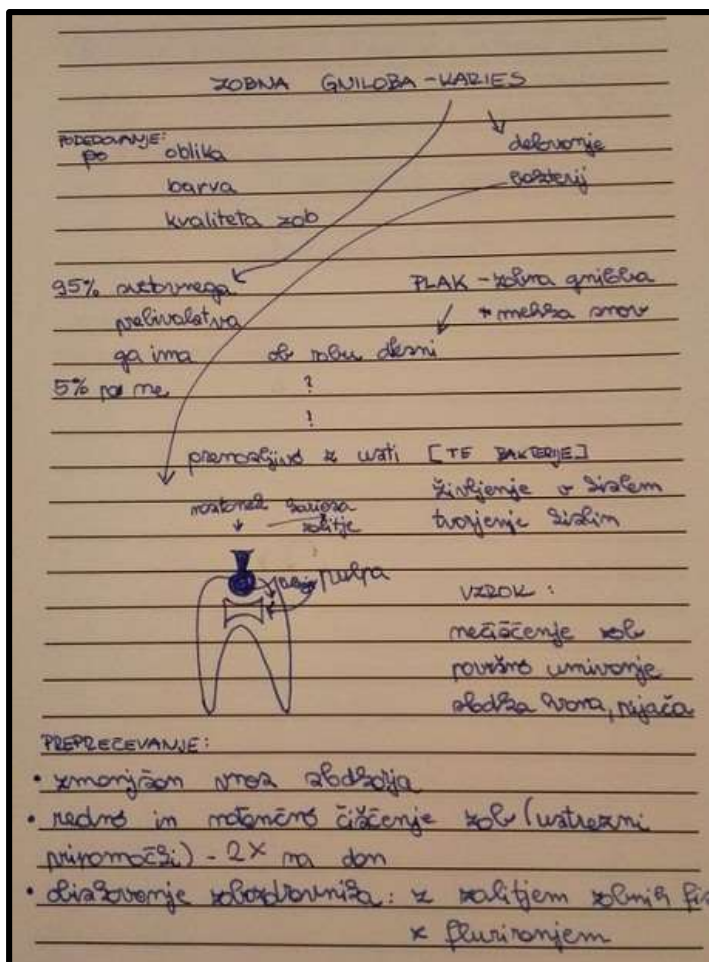 ZOBNA GNILOBA - KARIES
PODEDOVANJE:
po oblika
barva
kvaliteta zob
delovanje
bakterij
95% svetovnega
prebivalstva
ga ima
5% pa ne
PLAK - zobna gniloba
* mehka snov
ob robu dlesni
?
!
prenosljivo z usti [TE BAKTERIJE]
življenje v kislem
tvorjenje kislin
nastanek kariesa
zalitje
pulpa
VZROK:
neščiščenje zob
površno umivanje
sladka hrana, pijača
PREPREČEVANJE:
• zmanjšan vnos sladkorja
• redno in natančno čiščenje zob (ustrezni
pripomočki) - 2x na dan
• obiskovanje zobozdravnika: z zalitjem zobnih fis
z fluriranjem